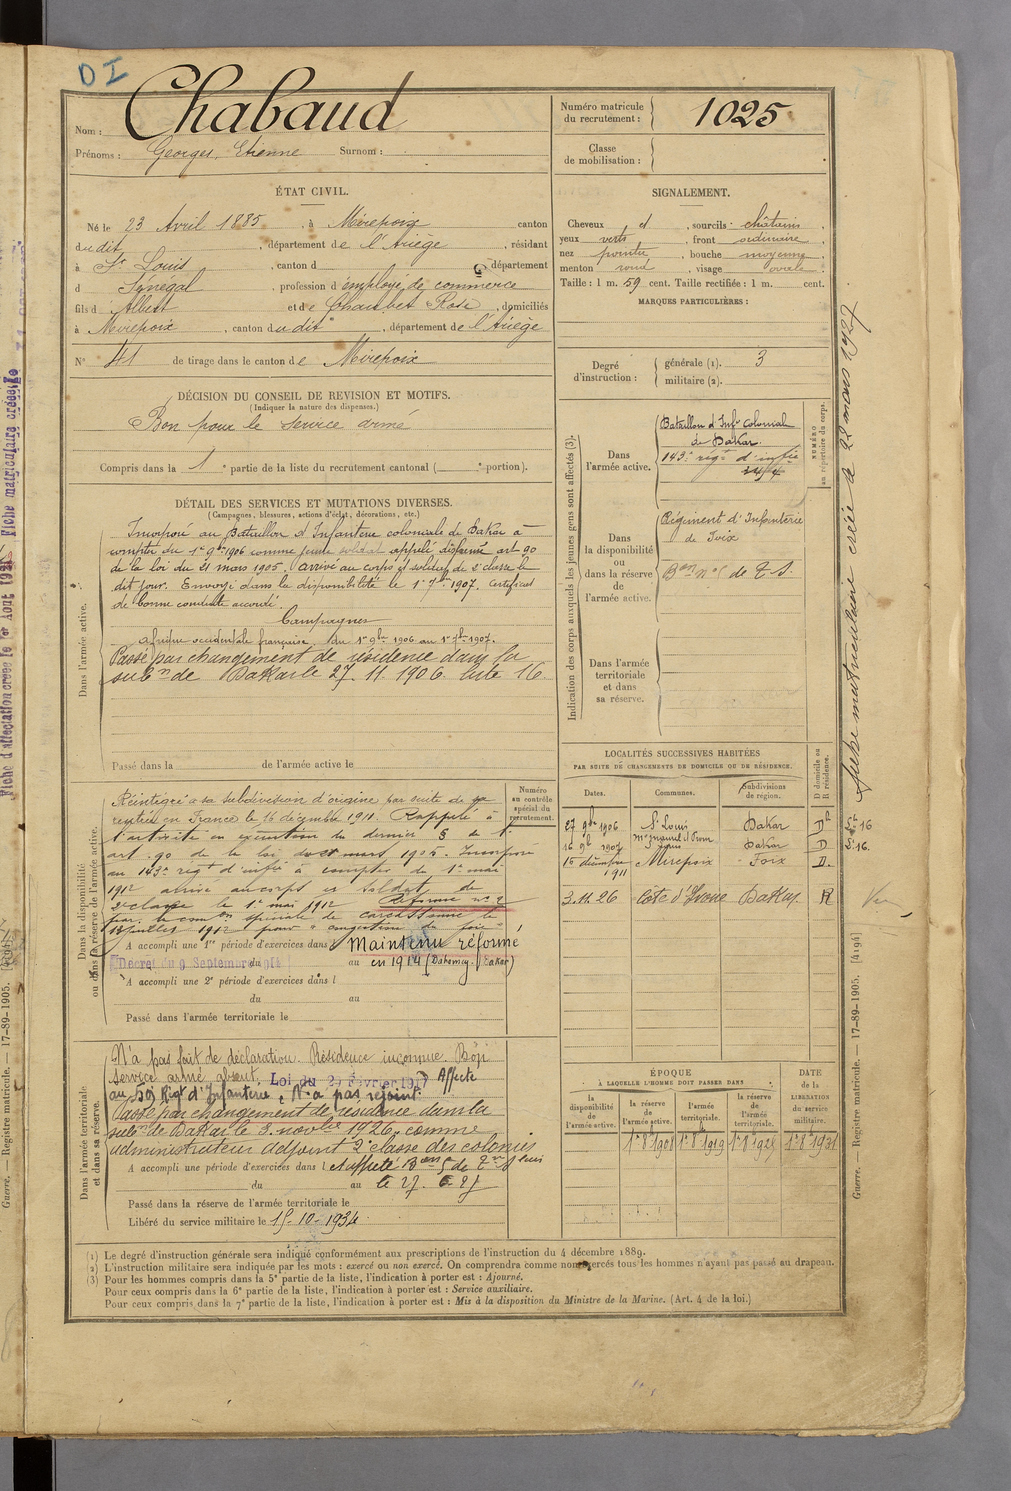 DI
Nom : Chabaud
Prénoms : Georges, Etienne Surnom :
Numéro matricule du recrutement : 1025
Classe de mobilisation :
ÉTAT CIVIL.
Né le 23 Avril 1885, à Mirepoix canton
du dit, département de l'Ariège, résidant
à St Louis, canton d , département
d Sénégal, profession d'employé de commerce
fils d Albert et de Chaubet Rose, domiciliés
à Mirepoix, canton du dit, département de l'Ariège
N° 41 de tirage dans le canton de Mirepoix
SIGNALEMENT.
Cheveux et , sourcils châtains,
yeux verts, front ordinaire,
nez pointu, bouche moyenne,
menton rond, visage ovale.
Taille : 1 m. 59 cent. Taille rectifiée : 1 m. cent.
MARQUES PARTICULIÈRES :
Degré d'instruction : générale (1). 3
militaire (2).
DÉCISION DU CONSEIL DE REVISION ET MOTIFS.
(Indiquer la nature des dispenses.)
Bon pour le service armé
Compris dans la 1e partie de la liste du recrutement cantonal ( e portion).
DÉTAIL DES SERVICES ET MUTATIONS DIVERSES.
(Campagnes, blessures, actions d'éclat, décorations, etc.)
Dans l'armée active.
Incorporé au Bataillon d'Infanterie coloniale de Dakar à
compter du 1er 9bre 1906 comme jeune soldat appelé art 90
de la loi du 21 mars 1905. Arrivé au corps et soldat de 2e classe le
dit jour. Envoyé dans la disponibilité le 1er 7bre 1907. Certificat
de bonne conduite accordé.
Campagnes
Afrique occidentale française du 1er 9bre 1906 au 1er 7bre 1907.
Passé par changement de résidence dans la
subon de Dakar le 27. 11. 1906 liste 16.
Passé dans la de l'armée active le
Indication des corps auxquels les jeunes gens sont affectés (3).
NUMÉRO au répertoire du corps.
Dans l'armée active.
Bataillon d'Infie colonial
de Dakar.
143e régt d'infie
Dans la disponibilité ou dans la réserve de l'armée active.
Régiment d'Infanterie
de Foix
Bon n°5 de T S.
Dans l'armée territoriale et dans sa réserve.
LOCALITÉS SUCCESSIVES HABITÉES
PAR SUITE DE CHANGEMENTS DE DOMICILE OU DE RÉSIDENCE.
Dates. Communes. Subdivisions de région. D domicile ou R résidence.
27 9bre 1906 St Louis Dakar D
Dakar D
16 décembre 1911 Mirepoix Foix D.
3.11.26 Côte d'Ivoire Dakar R
Dans la disponibilité ou dans la réserve de l'armée active.
Numéro au contrôle spécial du recrutement.
Réintégré à sa subdivision d'origine par suite de sa
rentrée en France le 16 décembre 1911. Rappelé à
l'activité en exécution du dernier § de l'
art. 90 de la loi du 21 mars 1905. Incorporé
au 143e régt d'infie à compter du 1er mai
1912 arrivé au corps et soldat de
2e classe le 1er mai 1912 Réformé n° 2
par la comon spéciale de Carcassonne le
juillet 1912 pour congestion du foie
A accompli une 1re période d'exercices dans l Maintenu réformé
Décret du 9 Septembre 1914 du au en 1914 (Dahomey. Dakar)
A accompli une 2e période d'exercices dans l
du au
Passé dans l'armée territoriale le
Dans l'armée territoriale et dans sa réserve.
N'a pas fait de déclaration. Résidence inconnue. Bon
service armé absent. Loi du 20 Février 1917 Affecté
au Régt d'Infanterie, N'a pas rejoint
Passé par changement de résidence dans la
subon de Dakar le 3. novbre 1926, comme
administrateur adjoint 2e classe des colonies
A accompli une période d'exercices dans l Affecté Bon 5 de
du au le 27.
Passé dans la réserve de l'armée territoriale le
Libéré du service militaire le 15-10-1934
ÉPOQUE
À LAQUELLE L'HOMME DOIT PASSER DANS
la disponibilité de l'armée active. la réserve de l'armée active. l'armée territoriale. la réserve de l'armée territoriale.
DATE de la LIBÉRATION du service militaire.
1er 8bre 1908 1er 8bre 1919 1er 8bre 1925 1er 8bre 1931
(1) Le degré d'instruction générale sera indiqué conformément aux prescriptions de l'instruction du 4 décembre 1889.
(2) L'instruction militaire sera indiquée par les mots : exercé ou non exercé. On comprendra comme non exercés tous les hommes n'ayant pas passé au drapeau.
(3) Pour les hommes compris dans la 5e partie de la liste, l'indication à porter est : Ajourné.
Pour ceux compris dans la 6e partie de la liste, l'indication à porter est : Service auxiliaire.
Pour ceux compris dans la 7e partie de la liste, l'indication à porter est : Mis à la disposition du Ministre de la Marine. (Art. 4 de la loi.)
Fiche matriculaire créée le 28 mars 1927
Guerre. — Registre matricule. — 17-89-1905. [4194]
Guerre. — Registre matricule. — 17-89-1905. [4194]
Fiche d'affectation créée le 1er Août
Fiche matriculaire créée le